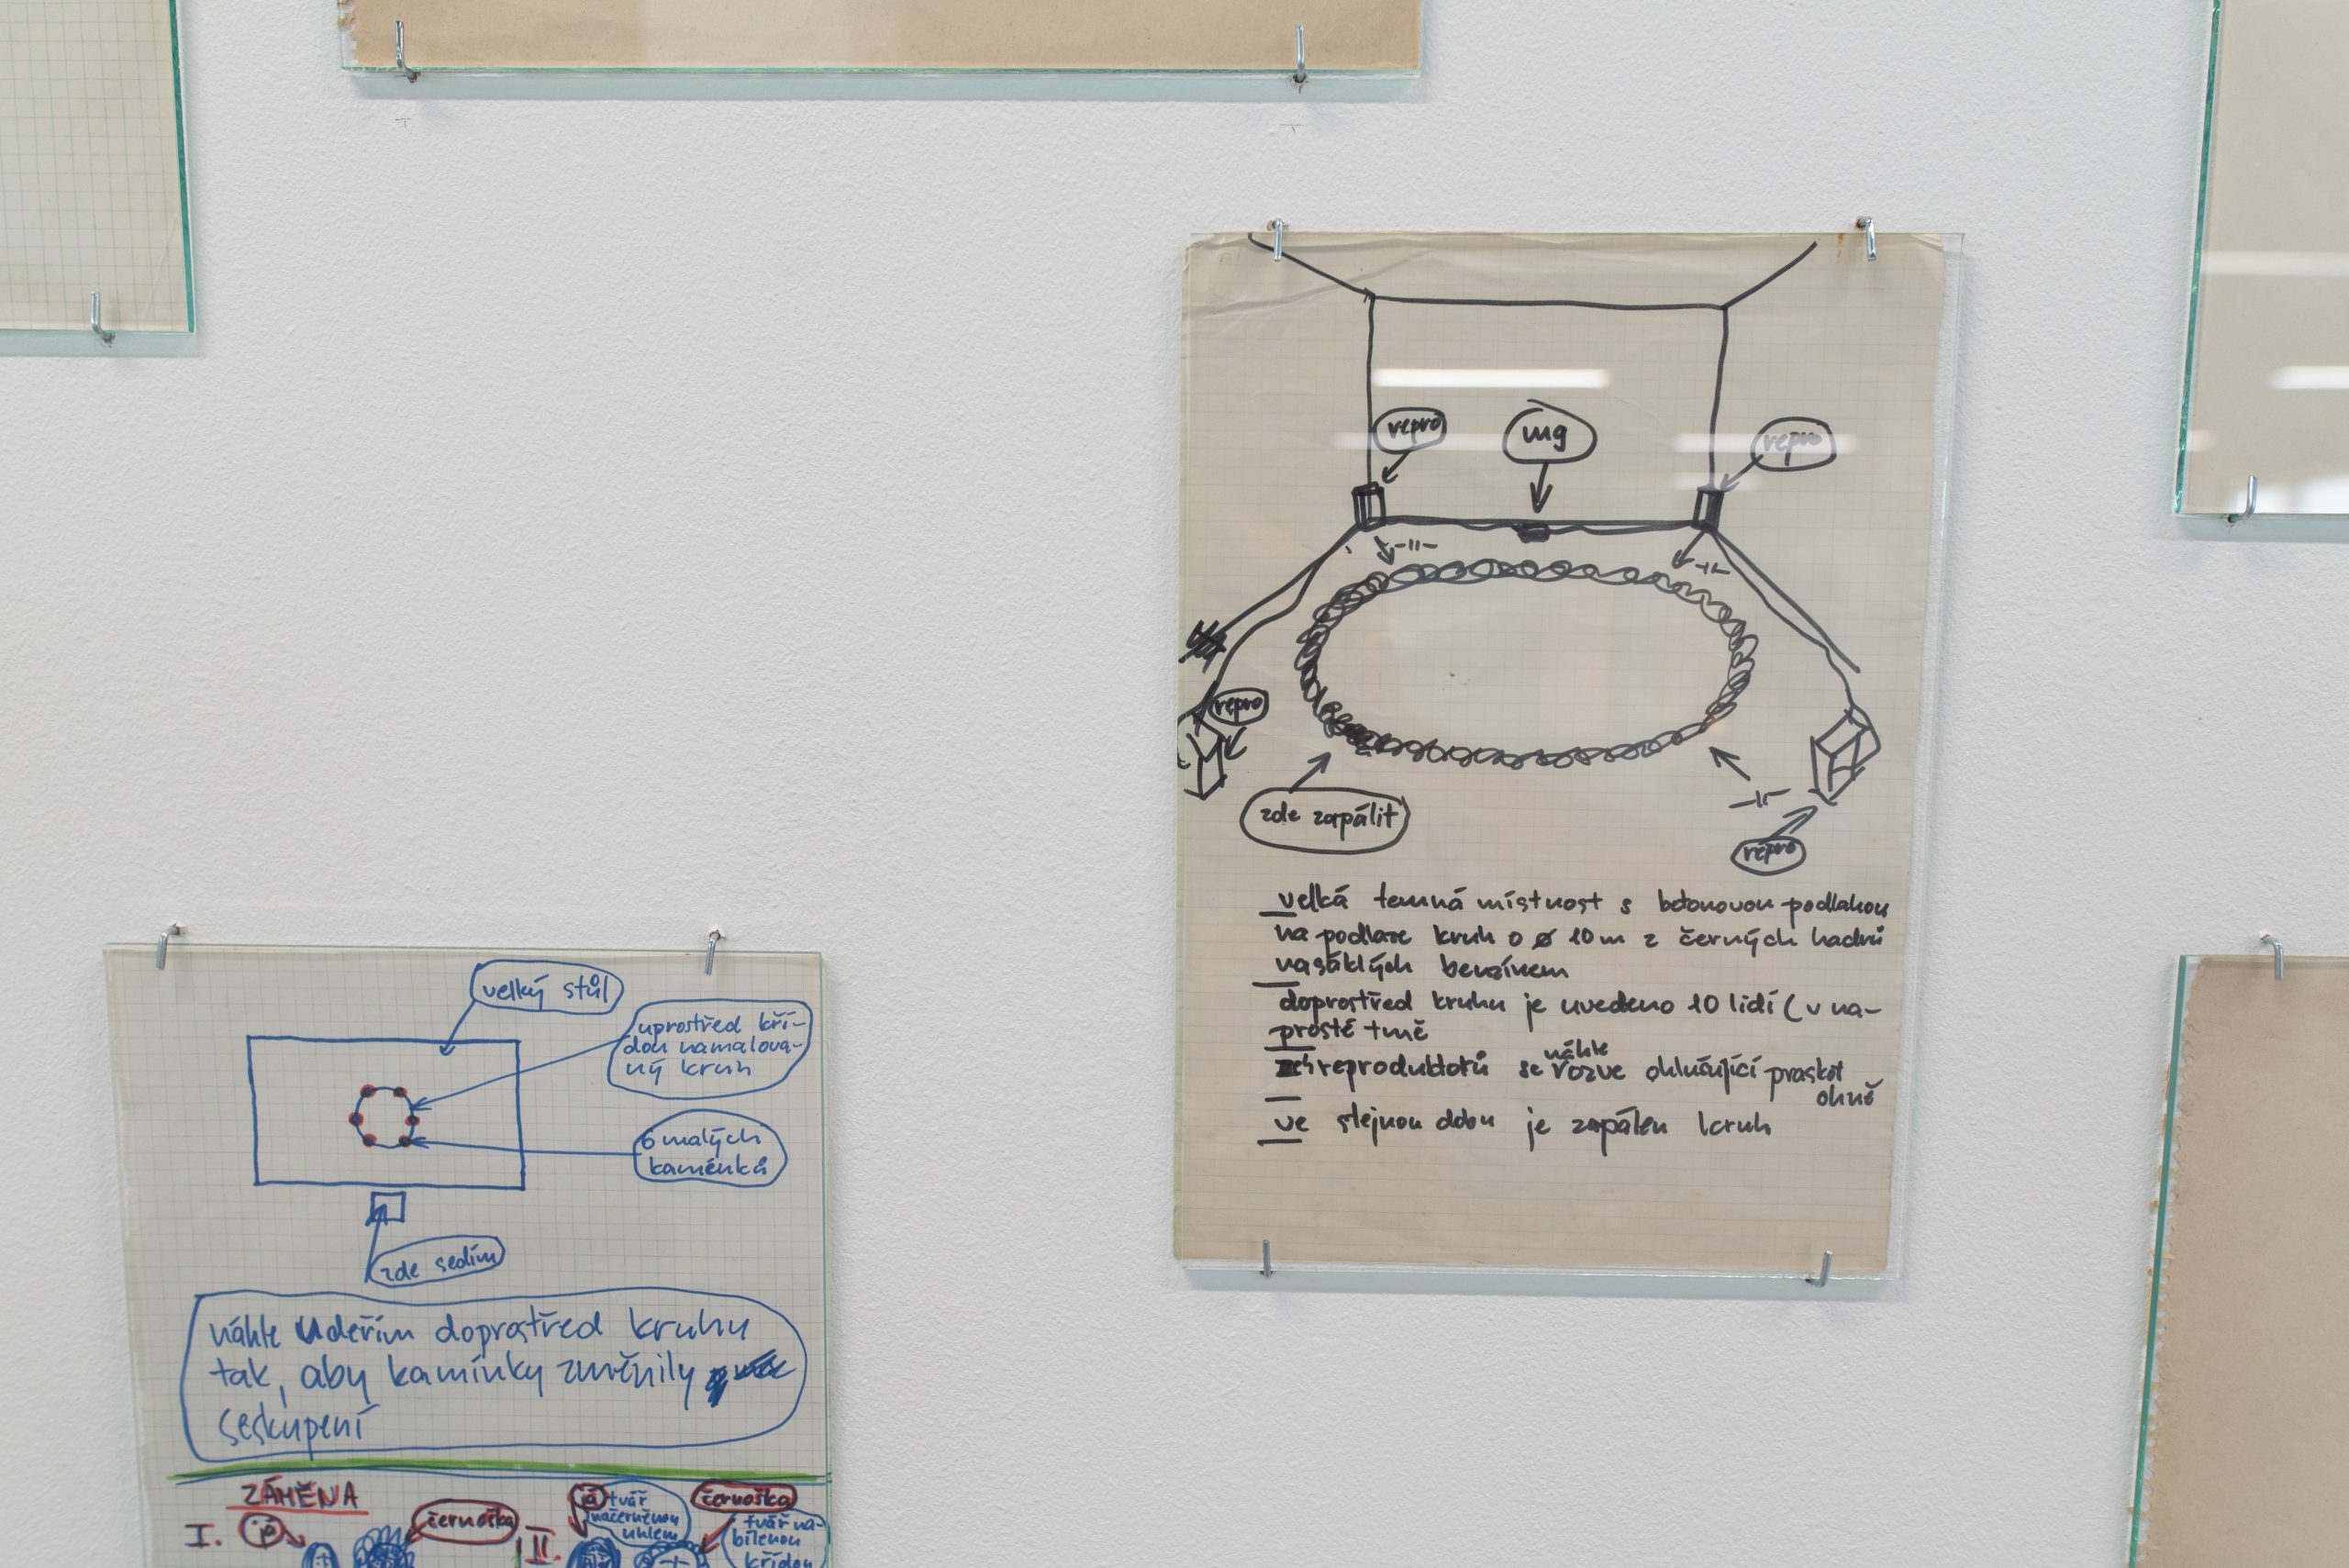 repro
mg
repro
-"-
-"-
repro
zde zapálit
-"-
repro
velká temná místnost s betonovou podlahou
na podlaze kruh o ø 10 m z černých hadrů
nasáklých benzínem
doprostřed kruhu je uvedeno 10 lidí (v na-
prosté tmě
reproduktorů se náhle ozve ohlušující praskot
ohně
ve stejnou dobu je zapálen kruh
velký stůl
uprostřed kří-
dou namalova-
ný kruh
6 malých
kaménků
zde sedím
náhle udeřím doprostřed kruhu
tak, aby kamínky změnily
seskupení
ZÁMĚNA
I.
já
černoška
II.
já
tvář
načerněnou
uhlem
černoška
tvář na-
bílenou
křídou